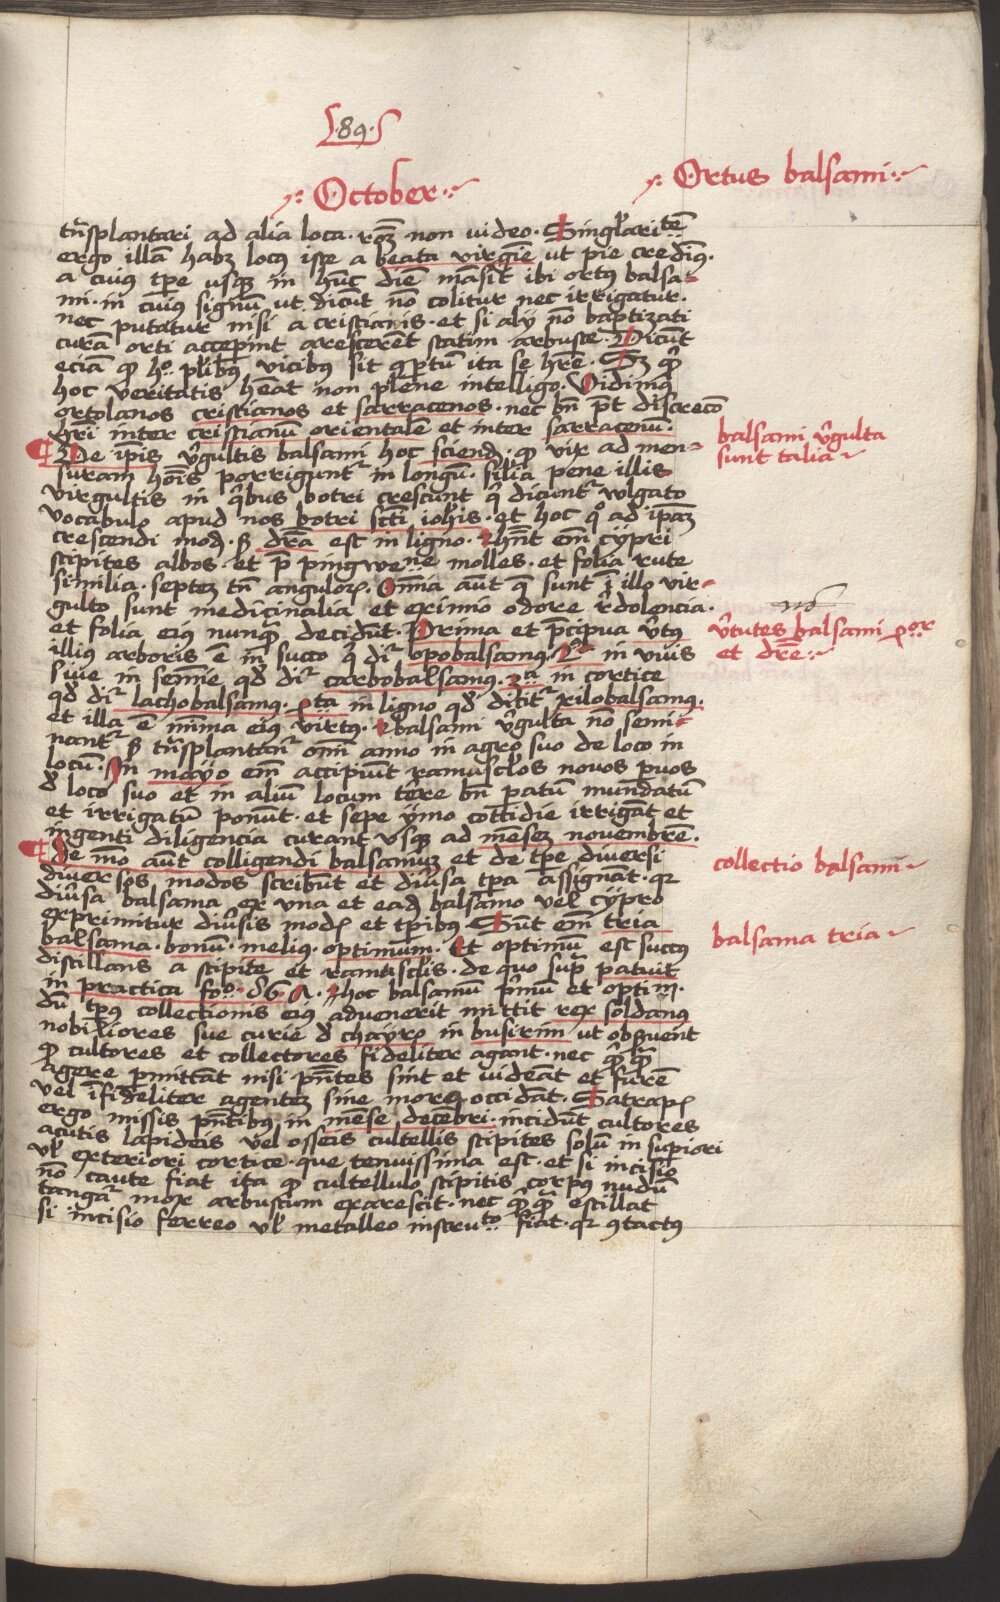 .89.
October
Ortus balsami
tn̄splantari ad alia loca. roē non video. Singl'aritē
ergo illā habȝ locꝰ iste a beata virgīe ut pie credimꝰ.
a cuiꝰ tp̄e usqꝫ in hūc diē māsit ibi ortꝰ balsa-
mi. in cuiꝰ signū ut dicūt nō colitur nec irrigatur.
nec putatur nisi a cristianis. et si alij nō baptizati
curā orti acceꝑint arescerēt statim arbuste. Dicūt
eciā ꝙ hoͦ pl'ibꝫ vicibꝫ sit exꝑtū ita se hr̄e. Sȝ qͥd
hoc veritatis hēat non plene intelligo. Vidimꝰ
ortolanos cristianos et sarracenos. nec bn̄ pt̄ discrecō
hr̄i inter cristianū orientalē et inter sarracenū.
De ip̄is v̓gultis balsami hoc sciend. ꝙ vix ad men-
suram hoīs porrigunt᷑ in longū. sil'ia pene illis
virgultis in qͥbus botri crescunt qͥ dicunt᷑ wlgato
vocabulo apud nos botri scti ioh'is. et hoc qͦ ad ip̄aꝫ
crescendi mod. sȝ dr̄a est in ligno. Hn̄t em̄ cypri
stipites albos. et p̄ pingwedīe molles. et folia rute
similia. septeȝ tn̄ anguloꝝ. Om̄ia aūt q̄ sunt ī illo vir-
gulto sunt medicinalia et eximio odore r̓dolencia.
et folia eiꝰ nunqꝫ decidūt. Prima et p̄cipua v̓tꝰ
illiꝰ arboris ē in succo qͥ dr̄ opobalsamꝰ. 2ᵃ in vivis
sive in semīe qd' dr̄ carbobalsamꝰ. 3ᵃ in cortice
qd' dr̄ lachobalsamꝰ. 4ᵗᵃ in ligno qd' dicit᷑ xilobalsamꝰ.
et illa ē minima eiꝰ virtꝰ. Balsami v̓gulta nō semi-
nant᷑ sȝ tn̄splantant᷑ omī anno in agro suo de loco in
locū. In mayo em̄ accipiūt ramuscl'os novos ꝑvos
d' loco suo et in aliū locum terre bn̄ patū mundatū
et irrigatū ponūt. et sepe ymo cottidie irrigāt et
ingenti diligencia curant usqꝫ ad mēseȝ novembrē.
De mō aūt colligendi balsamuȝ et de tp̄e diversi
diversos modos scribūt et div̓sa tp̄a assignāt. qꝛ
div̓sa balsama ex una et eadē balsamo vel cypro
exprimitur div̓sis mod et tp̄ibꝫ. Sūt em̄ tria
balsama. bonū. melius. optimum. Et optimū est succꝰ
distillans a stipite et ramuscl'is. de quo supͣ patuit
in practica foͦ. 86. A. Hoc balsamū pͥmū et optīm.
dū tp̄ꝰ collectionis eiꝰ advenerit mittit rex soldanꝰ
nobiliores sue curie d' chayro in busirim ut obs̓uent
ꝙ cultores et collectores fideliter agant. nec qͥcqͣꝫ
agere ꝑmittāt nisi pn̄tes sint et videāt et furē
vel īfideliter agenteȝ sine mora occidāt. Satrapis
ergo missis pn̄tibꝰ in mēse decēbri. incidūt cultores
acutis lapideis vel osseis cultellis stipites solū in suꝑiori
vl' exteriori cortice. que tenuissima est. et si incisio
nō caute fiat ita ꝙ cultellulo stipitis corpꝰ nudū
tangat᷑ mox arbustum exarescit. nec qͥcqͣ estillat
si incisio ferreo vl' metalleo instruᵗᵒ fiat. qꝛ ꝯtactꝰ
balsami v̓gulta
sunt talia
nō
v̓tutes balsami 4ᵒʳ
et dr̄e
collectio balsami
balsama tria